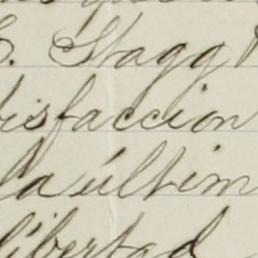 C. Stagg
isfaccion
la últim
libertad